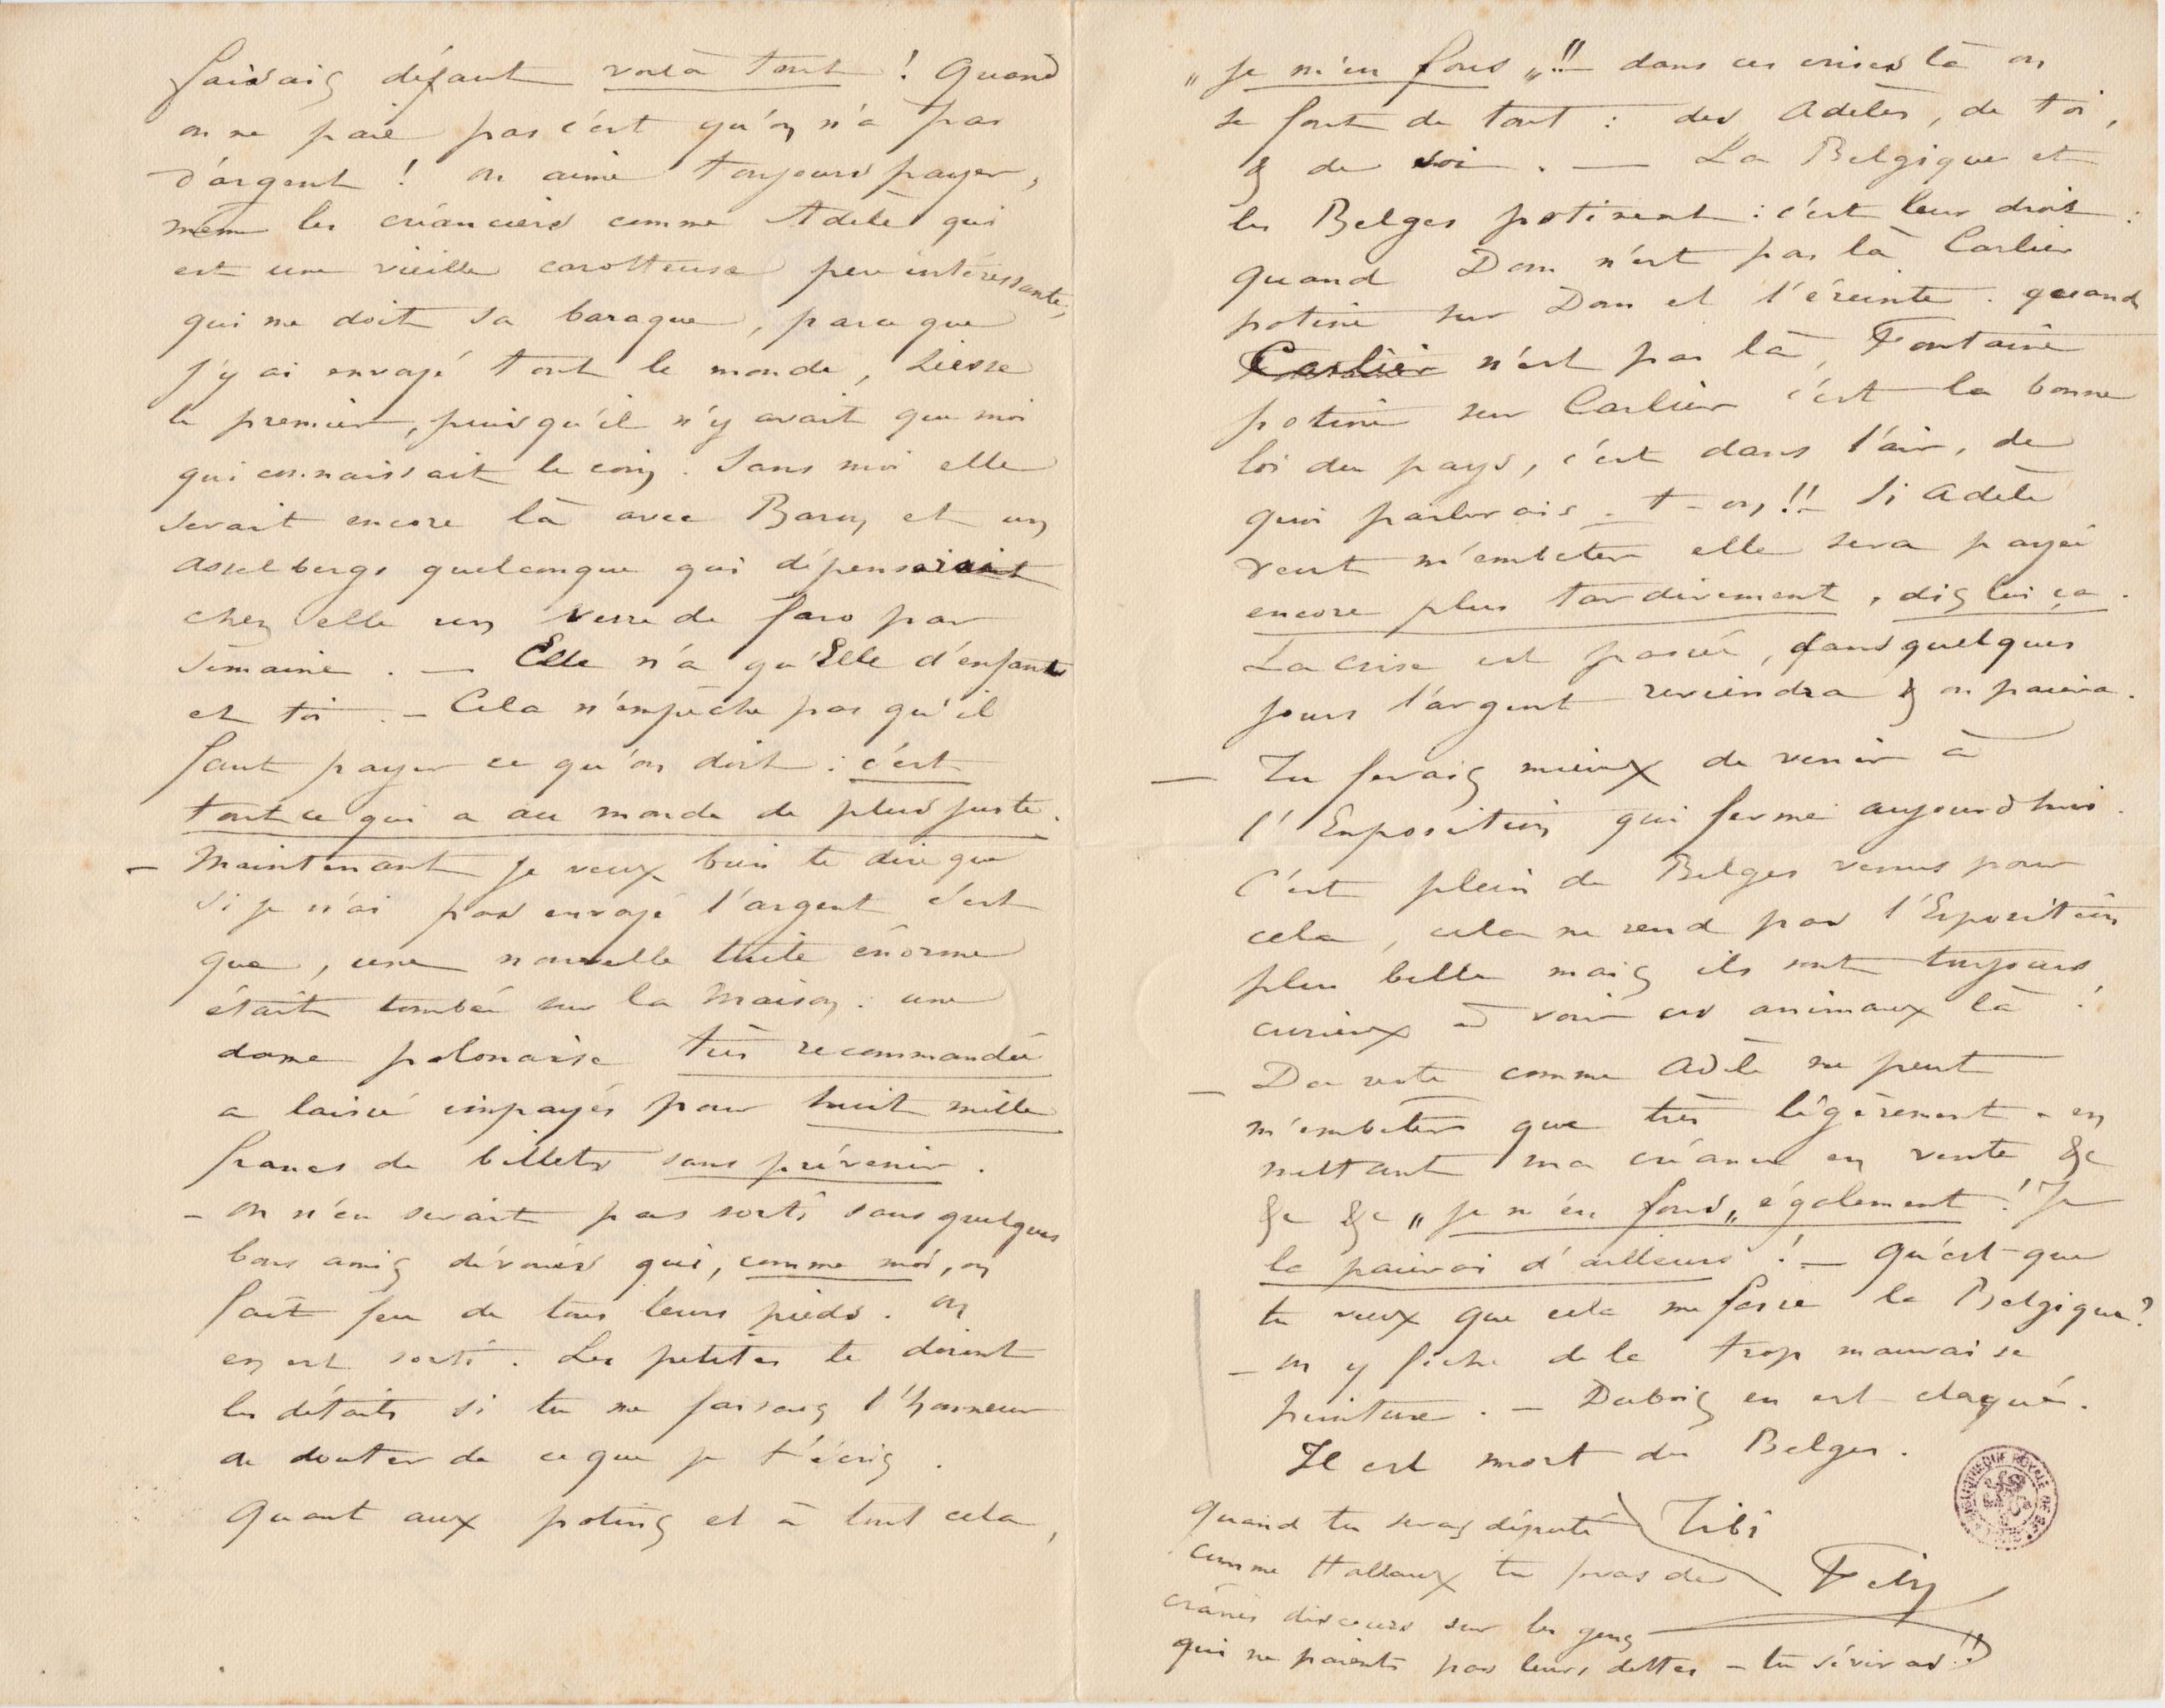 faisais défaut voilà tout ! Quand
on ne paie pas c'est qu'on n'a pas
d'argent ! on aime toujours payer,
même les créanciers comme Adèle qui
est une vieille carotteuse peu intéressante,
qui me doit sa baraque, parce que
j'y ai envoyé tout le monde, Liesse
le premier, puisqu'il n'y avait que moi
qui connaissait le coin. Sans moi elle
serait encore là avec Baron et un
Asselbergs quelconque qui dépenserait
chez elle un verre de faro par
semaine. — Elle n'a qu'Elle d'enfants
et toi. — Cela n'empêche pas qu'il
faut payer ce qu'on doit : c'est
tout ce qui a au monde de plus juste.
— Maintenant je veux bien te dire que
si je n'ai pas envoyé l'argent c'est
que, une nouvelle tuile énorme
était tombée sur la Maison : une
dame polonaise très recommandée
a laissé impayés pour huit mille
francs de billets sans prévenir.
— on n'en serait pas sorti sans quelques
bons amis dévoués qui, comme moi, on
fait feu de tous leurs pieds. On
en est sorti. Les petites te diront
les détails si tu me faisais l'honneur
de douter de ce que je t'écris.
Quant aux potins et à tout cela,
„ je m'en fous „!! — dans ces crises là on
se fout de tout : des Adèles, de toi,
& de soi. — La Belgique et
les Belges potinent : c'est leur droit :
quand Dom n'est pas là Carlier
potine sur Dom et l'éreinte. quand
Carlier n'est pas là, Fontaine
potine sur Carlier c'est la bonne
loi du pays, c'est dans l'air, de
quoi parlerais-t-on !! — Si Adèle
veut m'embêter elle sera payée
encore plus tardivement, dis lui ça.
La crise est passée, dans quelques
jours l'argent reviendra & on paiera.
— Tu ferais mieux de venir à
l'Exposition qui ferme aujourd'hui.
C'est plein de Belges venus pour
cela, cela ne rend pas l'Exposition
plus belle mais ils sont toujours
curieux à voir ces animaux là !
— Du reste comme Adèle ne peut
m'embêter que très légèrement - en
mettant ma créance en vente &c
&c &c „ je m'en fous „ également ! Je
la paierai d'ailleurs ! — Qu'est-que
tu veux que cela me fasse la Belgique ?
— on y fiche de la trop mauvaise
peinture. — Dubois en est claqué.
Il est mort du Belge.
Tibi
Fély
Quand tu seras député
comme Hallaux tu feras des
crânes discours sur les gens
qui ne paient pas leurs dettes — tu séviras !!